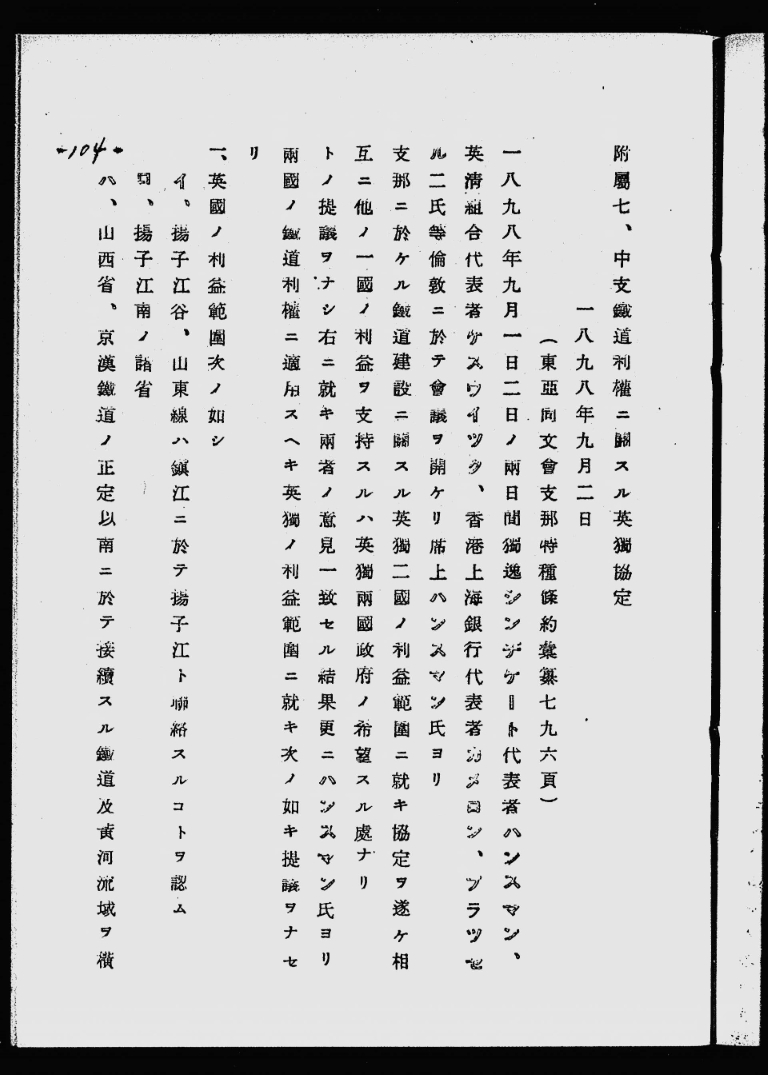 附屬七、中支鐵道利權ニ關スル英獨協定
一八九八年九月二日
(東亞同文會支那特種條約彙纂七九六頁)
一八九八年九月一日二日ノ兩日間獨逸シンヂケート代表者ハンスマン、
英淸組合代表者ケスウイツク、香港上海銀行代表者カメロン、ブラツセ
ル二氏等倫敦ニ於テ會議ヲ開ケリ席上ハンスマン氏ヨリ
支那ニ於ケル鐵道建設ニ關スル英獨二國ノ利益範圍ニ就キ協定ヲ遂ケ相
互ニ他ノ一國ノ利益ヲ支持スルハ英獨兩國政府ノ希望スル處ナリ
トノ提議ヲナシ右ニ就キ兩者ノ意見一致セル結果更ニハンスマン氏ヨリ
兩國ノ鐵道利權ニ適用スヘキ英獨ノ利益範圍ニ就キ次ノ如キ提議ヲナセ
リ
一、英國ノ利益範圍次ノ如シ
イ、揚子江谷、山東線ハ鎭江ニ於テ揚子江ト聯絡スルコトヲ認ム
ロ、揚子江南ノ諸省
ハ、山西省、京漢鐵道ノ正定以南ニ於テ接續スル鐵道及黃河流域ヲ橫
-104-